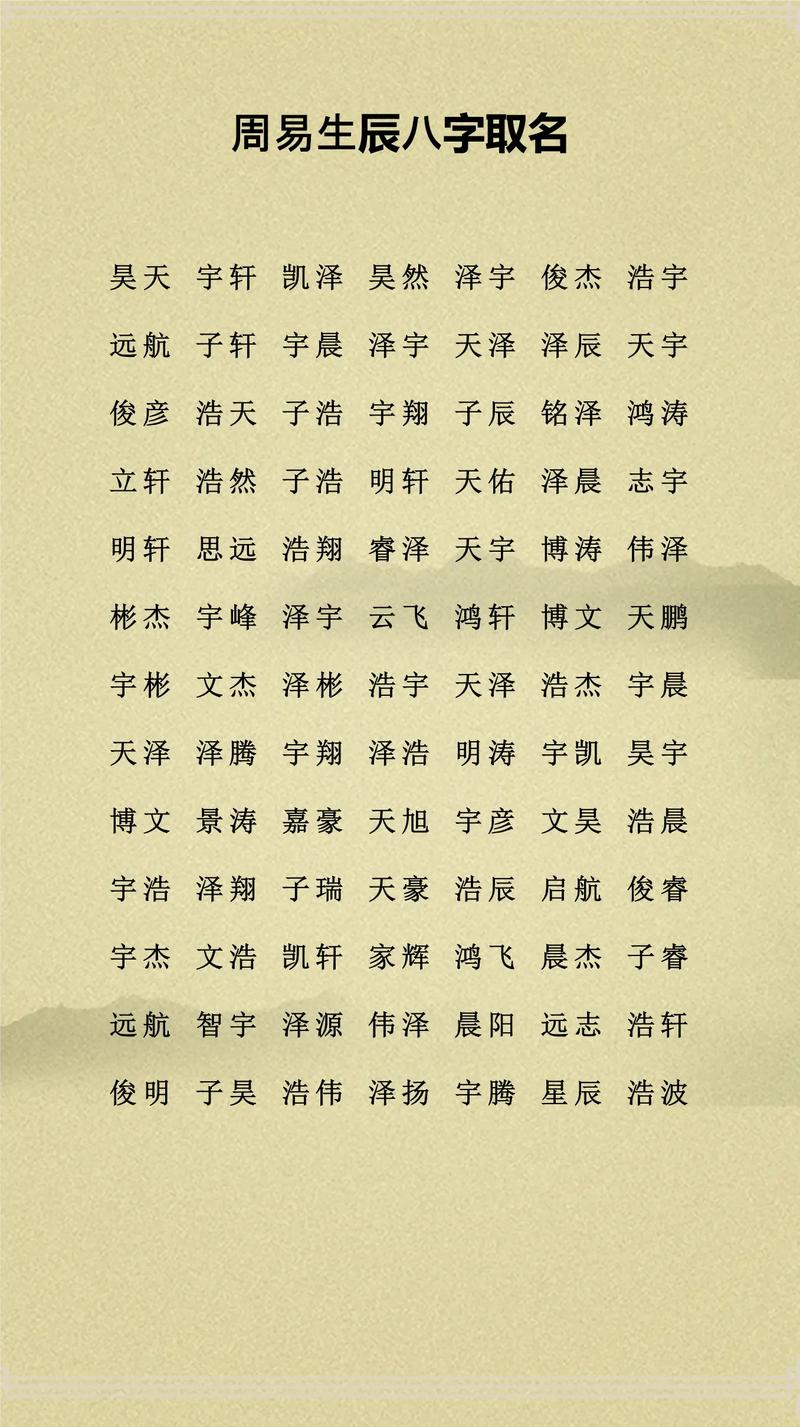 周易生辰八字取名
昊天 宇轩 凯泽 昊然 泽宇 俊杰 浩宇
远航 子轩 宇晨 泽宇 天泽 泽辰 天宇
俊彦 浩天 子浩 宇翔 子辰 铭泽 鸿涛
立轩 浩然 子浩 明轩 天佑 泽晨 志宇
明轩 思远 浩翔 睿泽 天宇 博涛 伟泽
彬杰 宇峰 泽宇 云飞 鸿轩 博文 天鹏
宇彬 文杰 泽彬 浩宇 天泽 浩杰 宇晨
天泽 泽腾 宇翔 泽浩 明涛 宇凯 昊宇
博文 景涛 嘉豪 天旭 宇彦 文昊 浩晨
宇浩 泽翔 子瑞 天豪 浩辰 启航 俊睿
宇杰 文浩 凯轩 家辉 鸿飞 晨杰 子睿
远航 智宇 泽源 伟泽 晨阳 远志 浩轩
俊明 子昊 浩伟 泽扬 宇腾 星辰 浩波